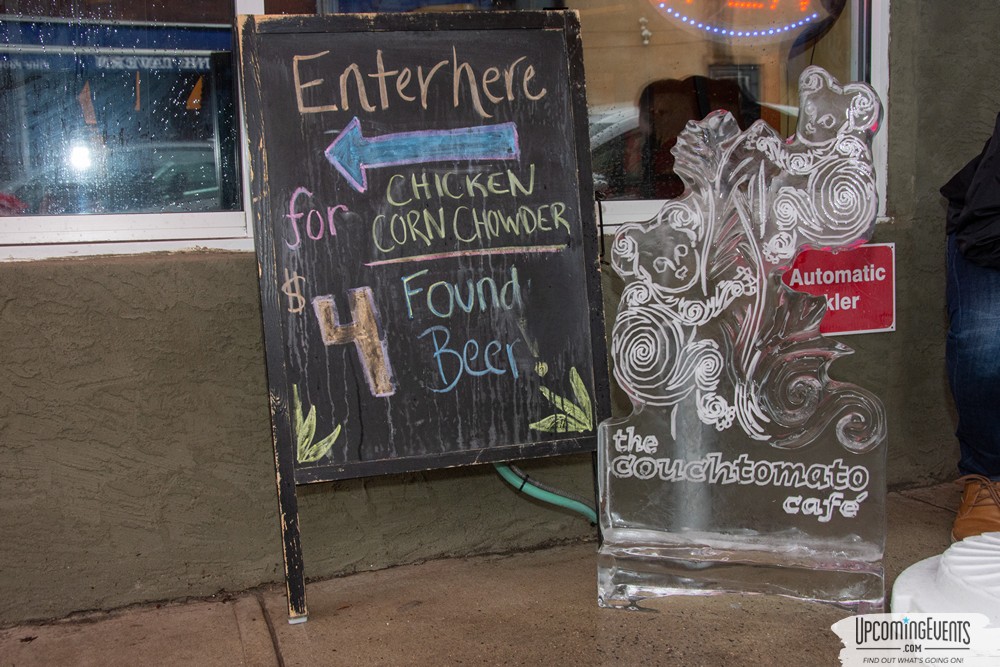 Enter here
for CHICKEN
CORN CHOWDER
$4 Found
Beer
Automatic
kler
the
couchtomato
café
UPCOMINGEVENTS
.COM
FIND OUT WHAT'S GOING ON!